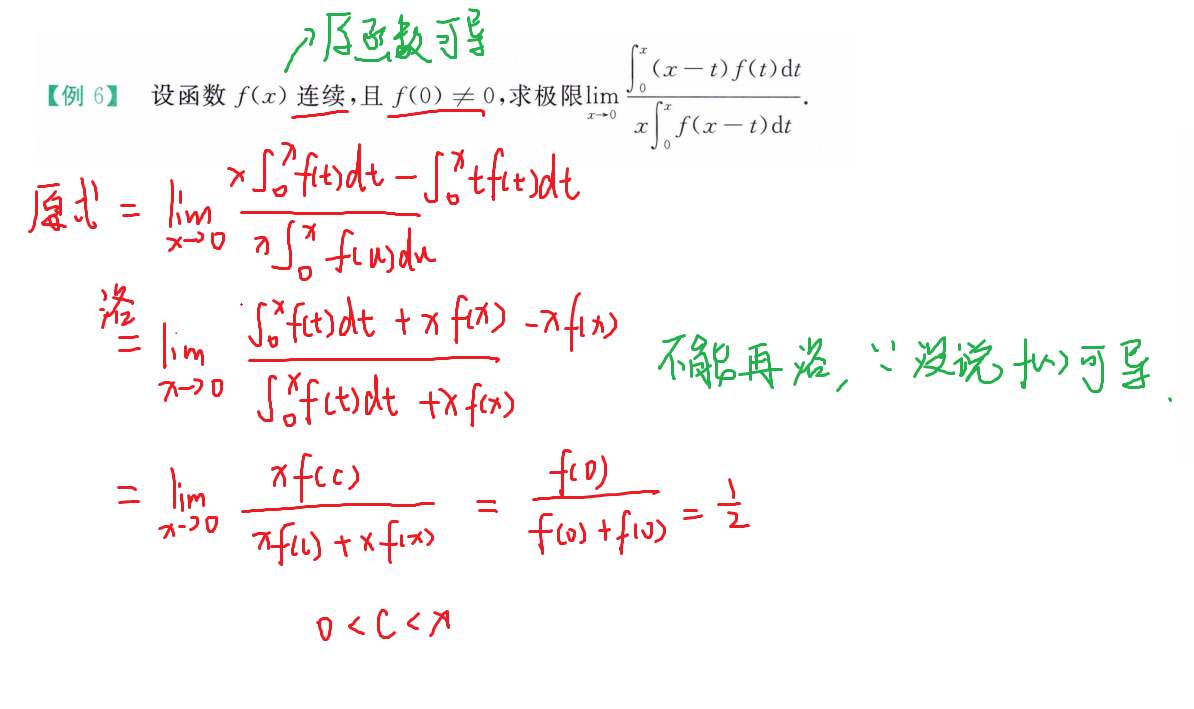 ↗原函数可导
【例 6】 设函数 f(x) 连续,且 f(0) ≠ 0,求极限 lim_{x→0} \frac{∫_0^x (x−t)f(t)dt}{x∫_0^x f(x−t)dt}.
原式 = lim_{x→0} \frac{x∫_0^x f(t)dt − ∫_0^x tf(t)dt}{x∫_0^x f(u)du}
洛
= lim_{x→0} \frac{∫_0^x f(t)dt + xf(x) − xf(x)}{∫_0^x f(t)dt + xf(x)} 不能再洛, ∵ 没说 f(x) 可导.
= lim_{x→0} \frac{xf(c)}{xf(c) + xf(x)} = \frac{f(0)}{f(0)+f(0)} = \frac{1}{2}
0 < c < x